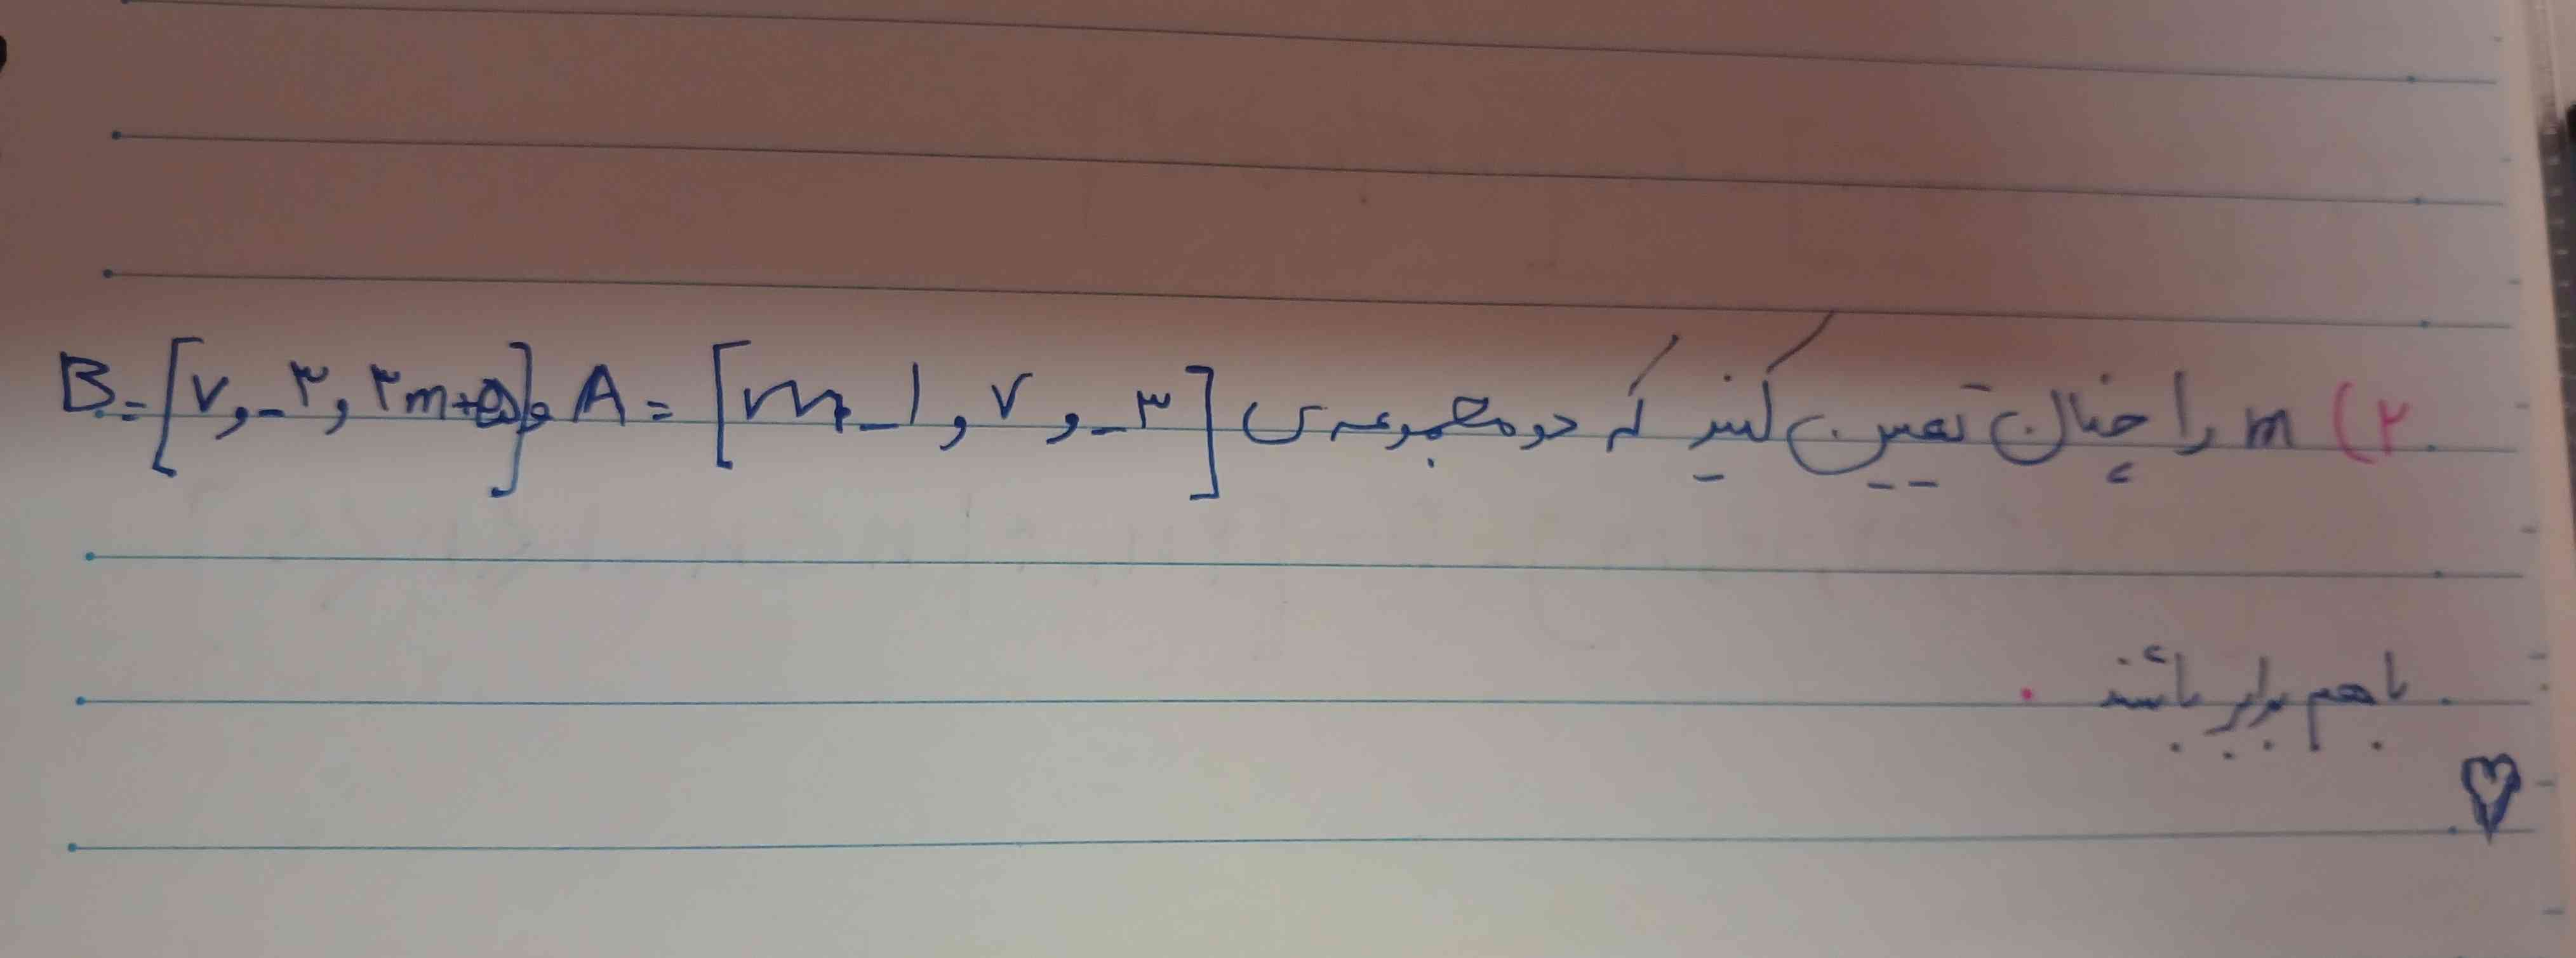 ۲) m را چنان تعیین کنید که دو مجموعه ی A = [m_1 , ۷ , _۳] و B = [۷ , _۳ , ۳m+۵]
با هم برابر باشند .